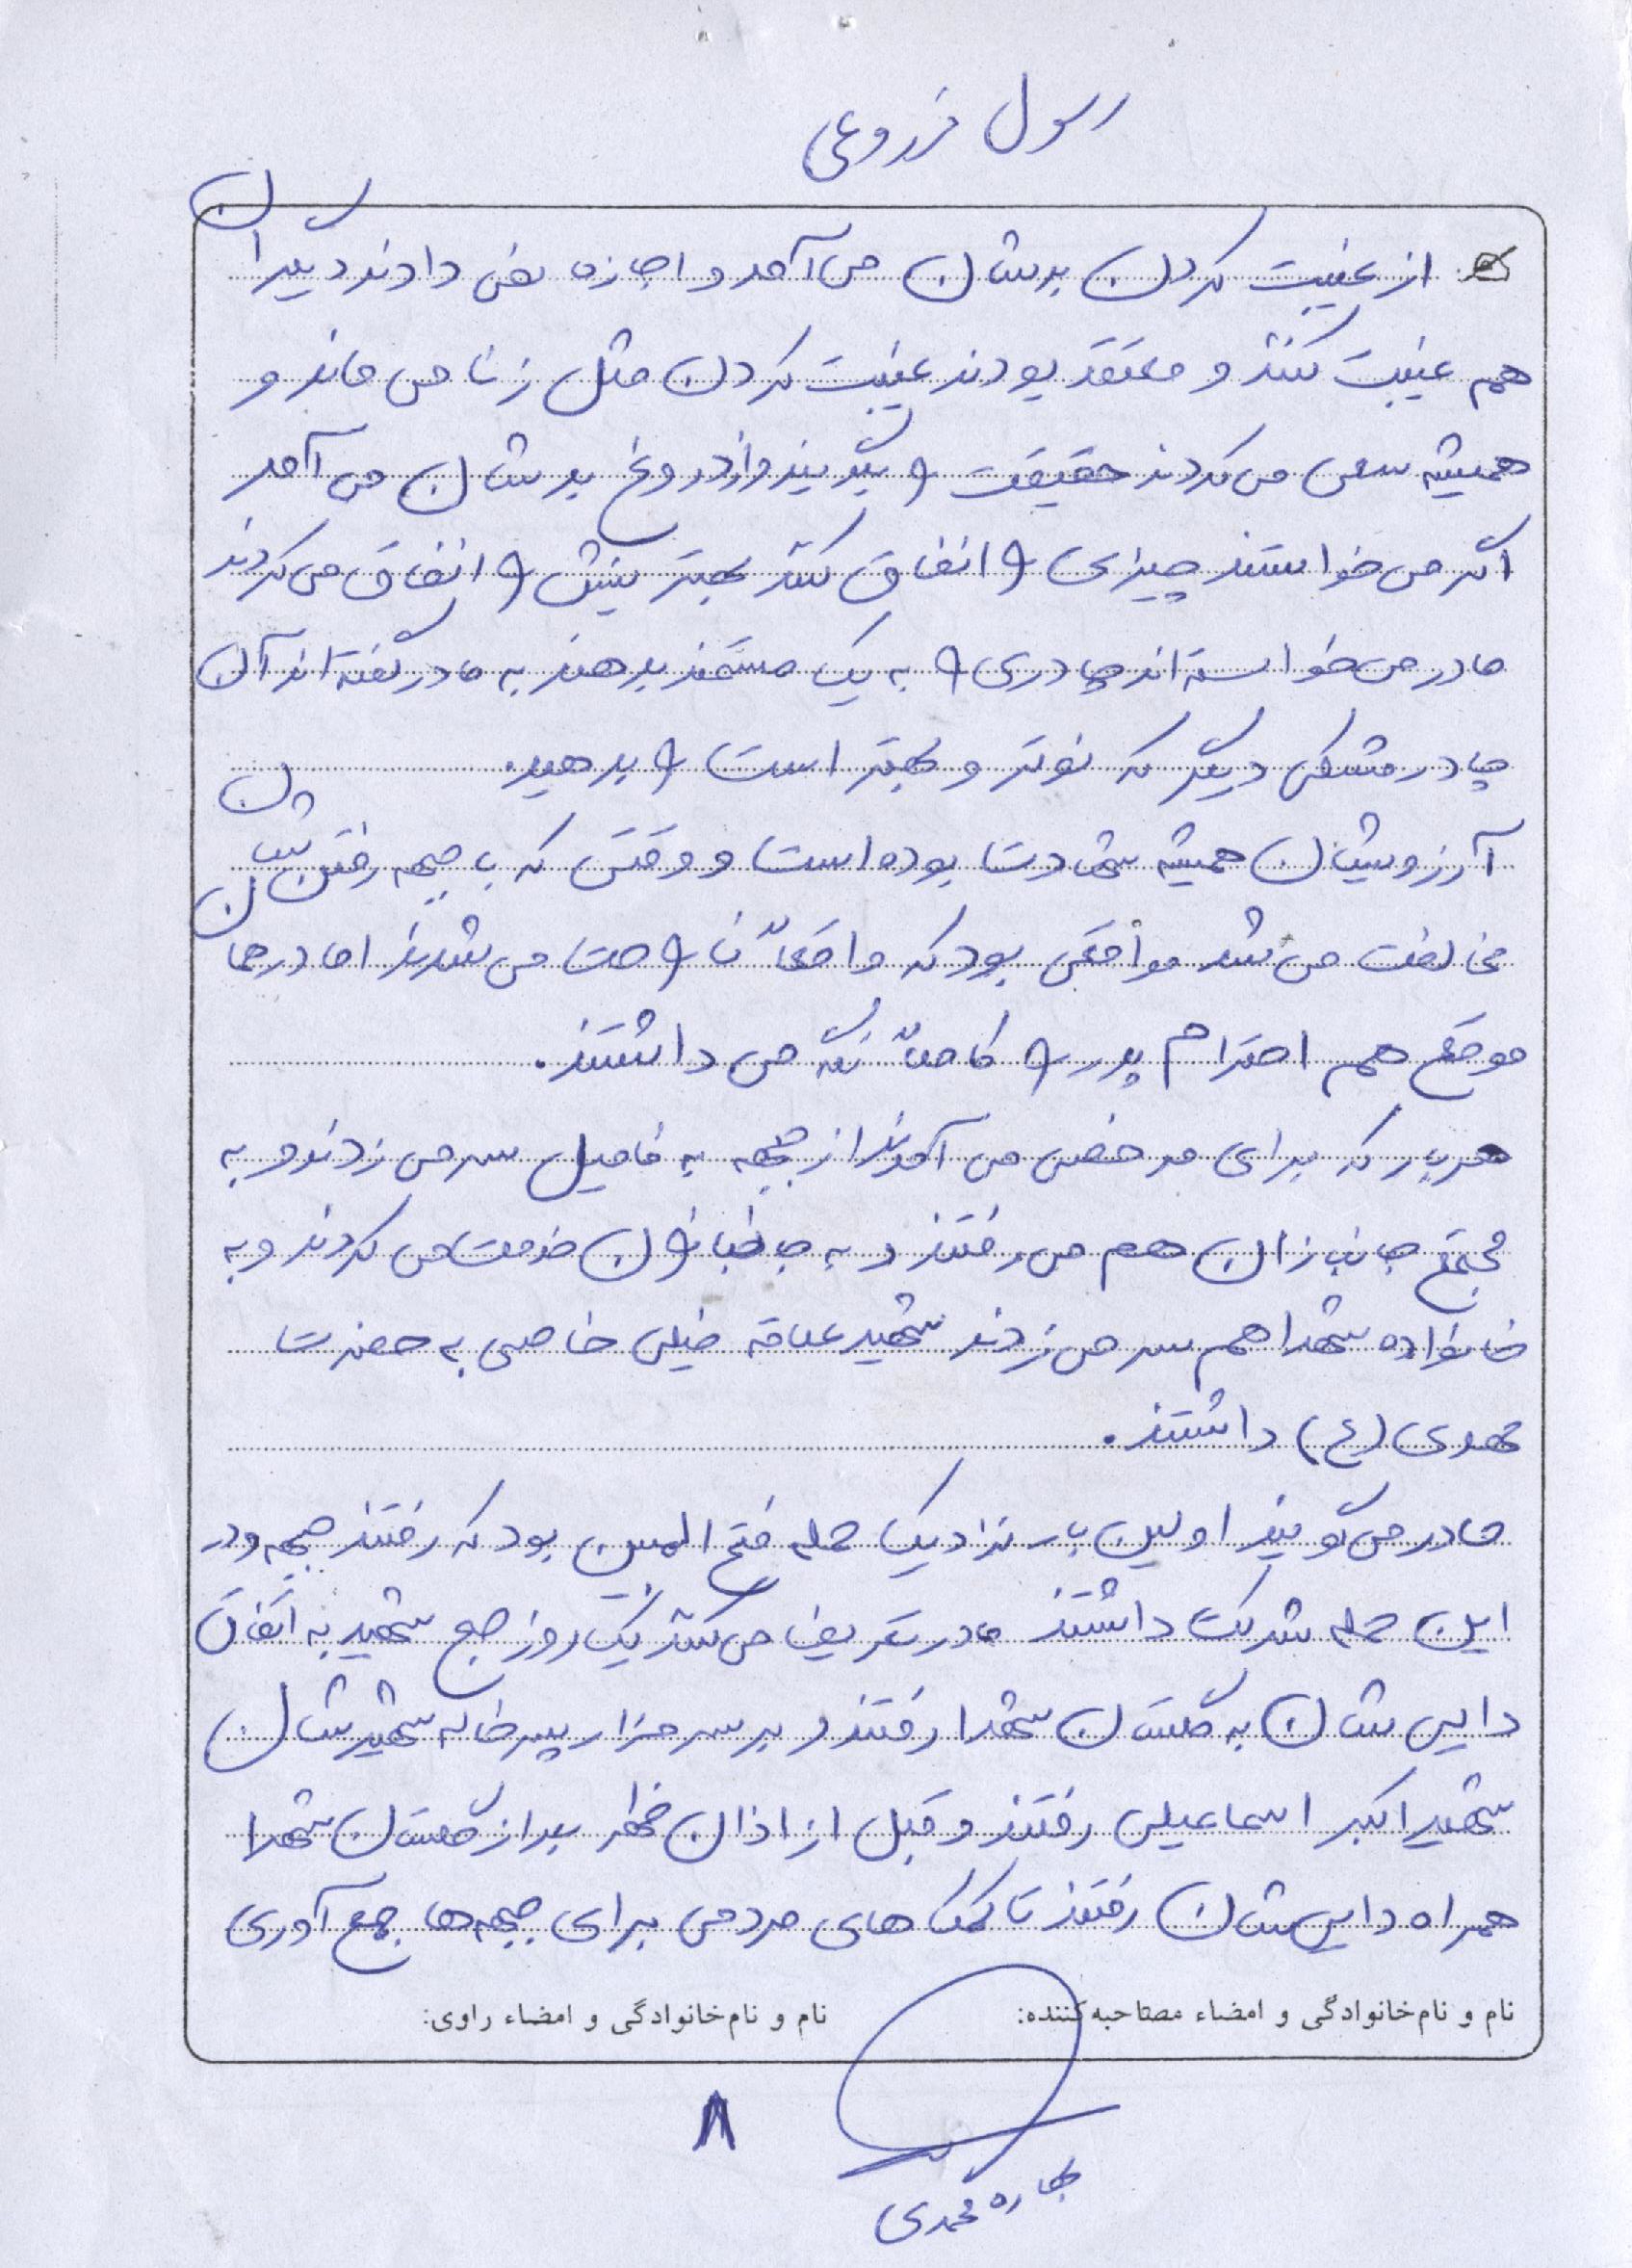 رسول فزروعی
از غیبت کردن بدشان می‌آمد و اجازه نمی‌دادند دیگران
هم غیبت کنند و معتقد بودند غیبت کردن مثل زنا می‌ماند و
همیشه سعی می‌کردند حقیقت را بگویند و از دروغ بدشان می‌آمد
اگر می‌خواستند چیزی را انفاق کنند بهترینش را انفاق می‌کردند
مادر می‌خواسته‌اند چادری را به یک مستمند بدهند به مادر گفته‌اند آن
چادر مشکی دیگر که نوتر و بهتر است را بدهید.
آرزویشان همیشه شهادت بوده است و وقتی که با جبهه رفتن‌شان
مخالفت می‌شد مواقعی بود که واقعاً ناراحت می‌شدند اما در همان
موقع هم احترام پدر را کاملاً نگه می‌داشتند.
هر بار که برای مرخصی می‌آمدند از جبهه به فامیل سر می‌زدند و به
مجتمع جانبازان هم می‌رفتند و به جانبازان خدمت می‌کردند و به
خانواده شهدا هم سر می‌زدند شهید علاقه خیلی خاصی به حضرت
مهدی (عج) داشتند.
مادر می‌گویند اولین بار نزدیک حمله فتح المبین بود که رفتند جبهه و در
این حمله شرکت داشتند مادر تعریف می‌کنند یک روز صبح شهید به اتفاق
دایی‌شان به گلستان شهدا رفتند و بر سر مزار پسرخاله شهیدشان
شهید اکبر اسماعیلی رفتند و قبل از اذان ظهر بعد از گلستان شهدا
همراه دایی‌شان رفتند تا کمک‌های مردمی برای جبهه‌ها جمع‌آوری
نام و نام‌خانوادگی و امضاء مصاحبه‌کننده: نام و نام‌خانوادگی و امضاء راوی:
۸
بهاره محمدی